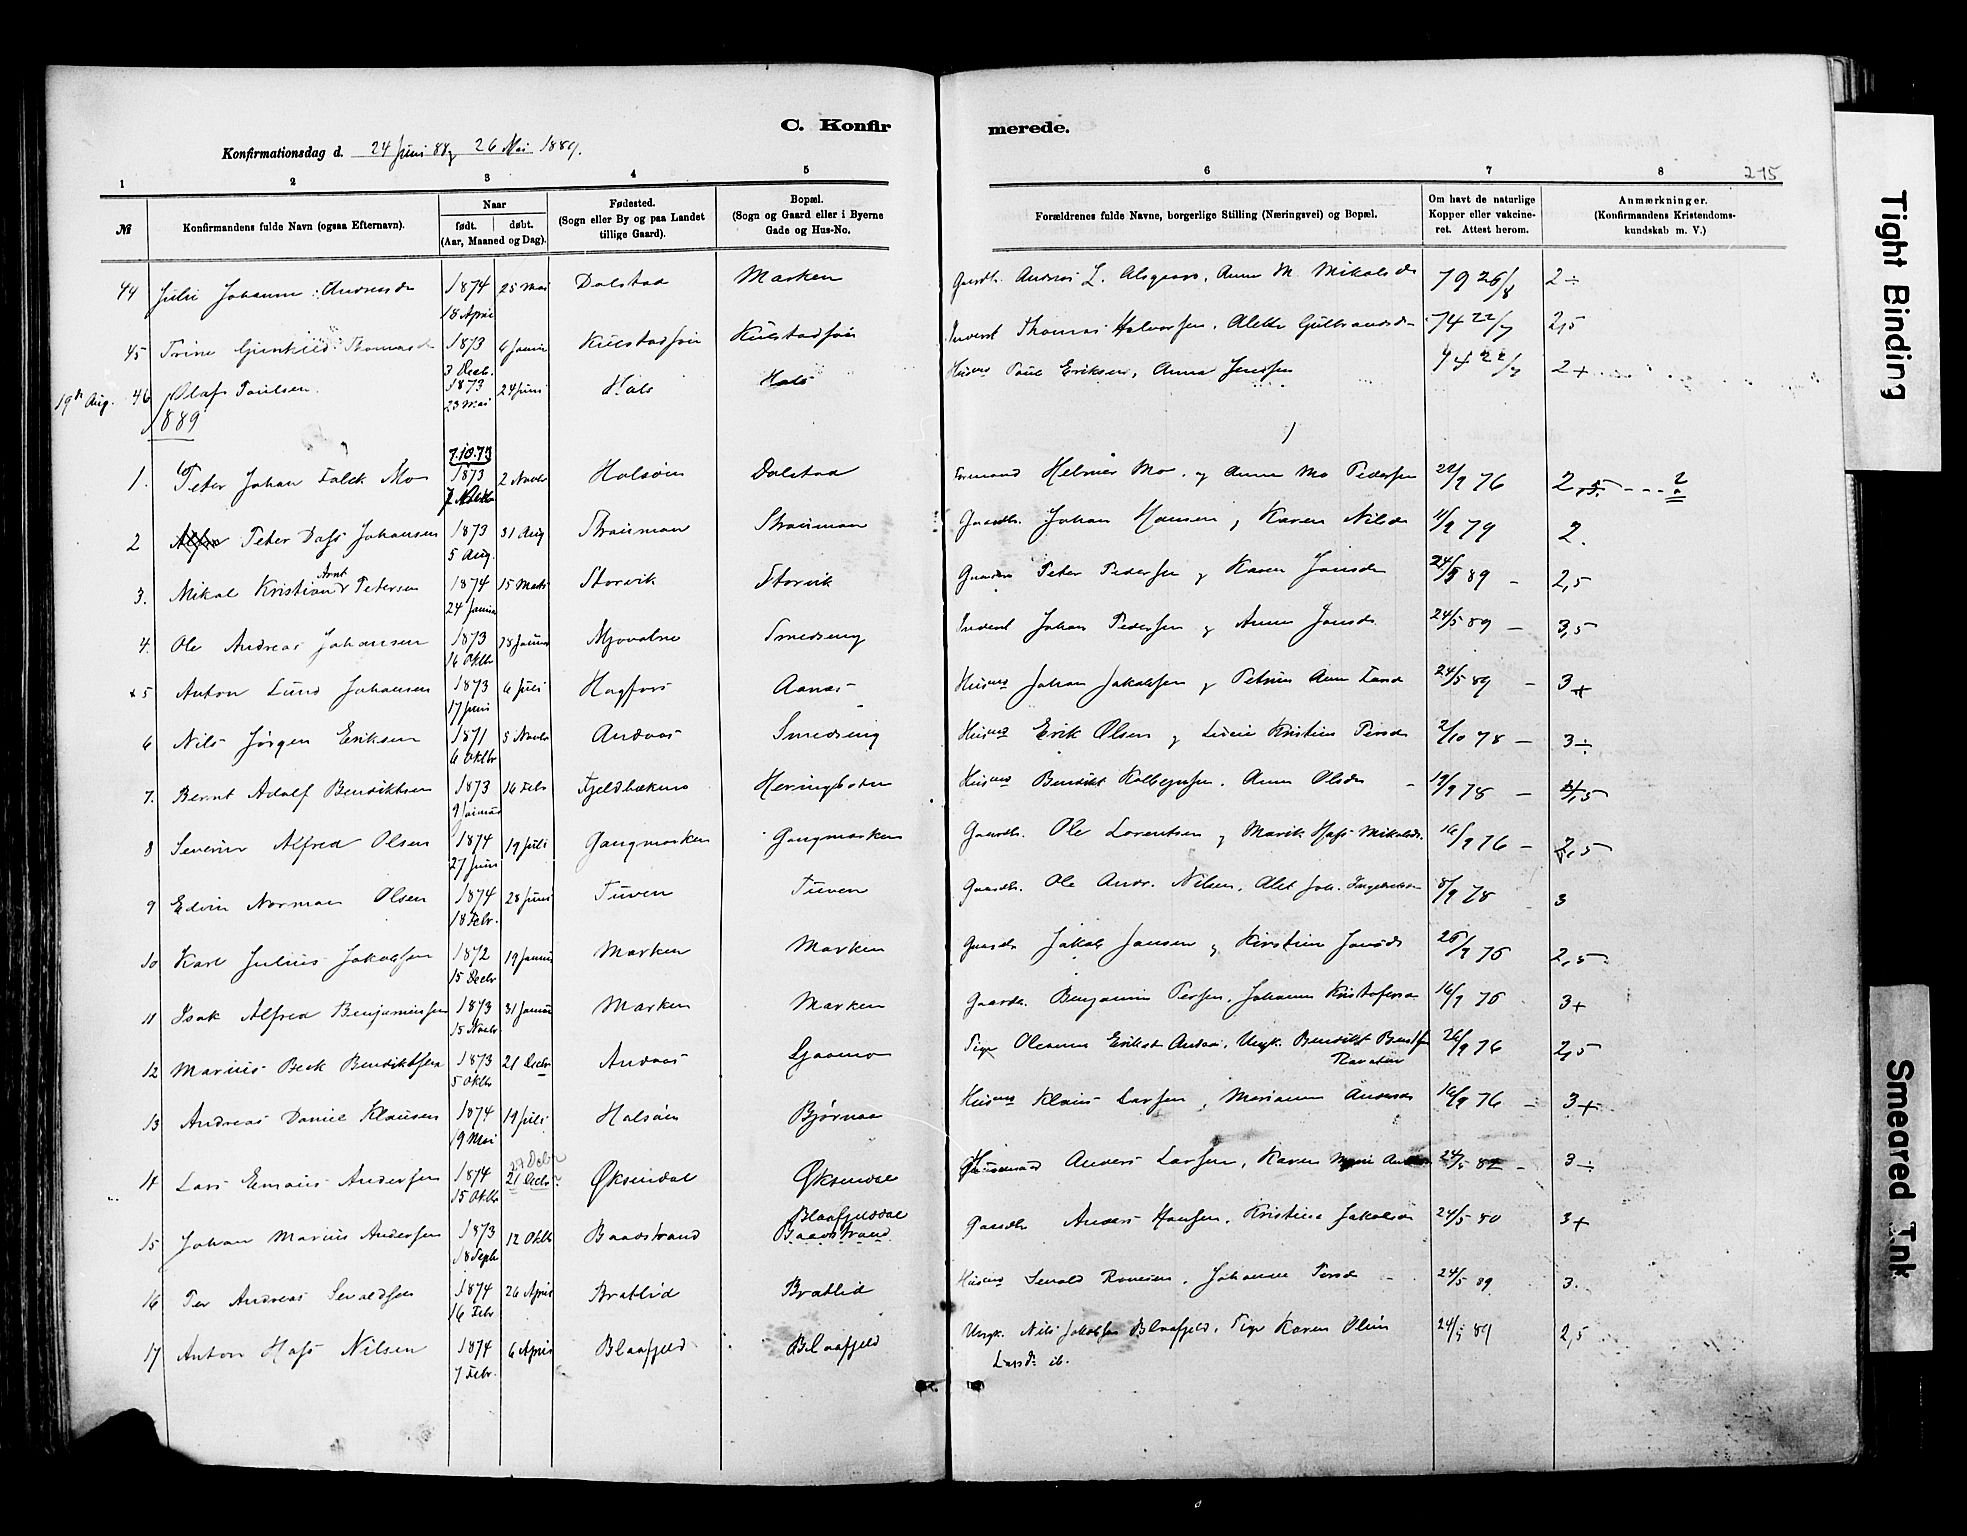 C. Konfirmerede.
Konfirmationsdag d. 24 Juni 88 og 26 Mai 1889.
215
1 2 3 4 5 6 7 8
№
Konfirmandens fulde Navn (ogsaa Efternavn).
Naar
født. døbt.
(Aar, Maaned og Dag).
Fødested.
(Sogn eller By og paa Landet
tillige Gaard).
Bopæl.
(Sogn og Gaard eller i Byerne
Gade og Hus-No.
Forældrenes fulde Navne, borgerlige Stilling (Næringsvei) og Bopæl.
Om havt de naturlige
Kopper eller vakcine-
ret. Attest herom.
Anmærkninger.
(Konfirmandens Kristendoms-
kundskab m. V.)
44 Julie Johanne Andreasd 1874 18 April 25 Mai Dolstad Marken Gaardb. Andreas L. Alsgaard, Anne M. Mikalsd 79 26/8 2÷
45 Trine Thomasd 1873 3 Decb. 6 Janu Kulstadsjøen Kulstadsjøen Inderst Thomas Halvorsen, Alette Gulbrandsd 74 22/7 2,5
19de Aug. 46 Olaf Paulsen. 1873 23 Mai 24 Juni Hals Hals Husmd Paul Eriksen, Anna Jensen 74 22/7 2+
1889
1. Peter Johan Falck Mo 7.10.73 1873 2 Novbr Halsøen Dolstad Formand Helmer Mo og Anna Mo Pedersen 22/9 76 2,5 - - - 2
2 Peter Dass Johansen 1873 5 Aug. 31 Aug Strauman Strauman Gaardb. Johan Hansen og Karen Nilsd 11/9 79 2.
3. Mikal Kristian Arnt Petersen 1874 24 Janua 15 Marts Storvik Storvik Gaardb Peter Pedersen og Karen Jonsd 24/5 89 - 2,5
4. Ole Andreas Johansen 1873 16 Oktbr 28 Janua Mjovatne Smedseng Inderst Johan Pedersen og Anna Jonsd. 24/5 89 - 3,5
+5 Anton Lund Johansen 1873 17 Juni 6 Juli Hagfors Aanes Husmd Johan Jakobsen og Petrine Ann Lund 24/5 89 - 3+
6 Nils Jørgen Eriksen 1871 6 Oktbr 5 Novbr Andaas Smedseng Husmd Erik Olsen og Kristine Persd 2/10 78 - 3÷
7. Bernt Adolf Bendiktsen 1873 9 Januar 16 Febr Fjeldbækmo Heringbotn Husmd Bendikt Kolbeinsen. Anne Olsd - 19/9 78 -
8 Severin Alfred Olsen 1874 27 Juni 19 Juli Gangmarken Gangmarken Gaardb. Ole Lorentsen og Marit Hass Mikalsd. 16/9 76 - 2,5
9 Edvin Norman Olsen 1874 18 Febr. 28 Juni Tuven Tuven Gaardb. Ole Andr. Nilsen, Alet Joh. Ingebriktsd 8/9 78 3
10 Karl Julius Jakobsen 1872 15 Decbr 19 Janua Marken Marken Gaardb Jakob Jansen og Kirstine Jonsd 26/9 76 2,5
11 Isak Alfred Benjaminsen 1873 15 Novbr 31 Janua Marken Marken Gaardb. Benjamin Persen, Johanna Kristofersd 16/9 76 3+
12 Marius Beck Bendiktsen 1873 5 Oktbr 21 Decbr Andaas Ljaamo Pige Oleanna Eriksd Andaas, Ungk. Bendikt Berntsen 26/9 76 2,5
13 Andreas Daniel Klausen 1874 19 Mai 19 Juli Halsøen Bjørnaa Husmd Klaus Larsen, Marianne Andersd 16/9 76 - 3+
14 Lars Emaus Andersen 1874 15 Oktbr 27 Decbr 21 Decbr Øksendal Øksendal Husmand Anders Larsen, Karen Marie 24/5 82 - 3÷
15 Johan Marius Andersen 1873 18 Septb 12 Oktbr Baadstrand Blaafjeldal Baadstrand Gaardb Anders Hansen, Kristina Jakobsd 24/5 80 3+
16 Per Andreas Sevaldsen 1874 16 Febr 26 April Bratlid Bratlid Husmd Sevald Ronesen, Johanna Persd - 24/5 89 3.
17 Anton Hass Nilsen 1874 7 Febr. 6 April Blaafjeld Blaafjeld Ungk. Nils Jakobsen Blaafjeld, Pige Karen Oline 24/5 89 2,5
Larsd. ib.
Tight Binding
Smeared Ink